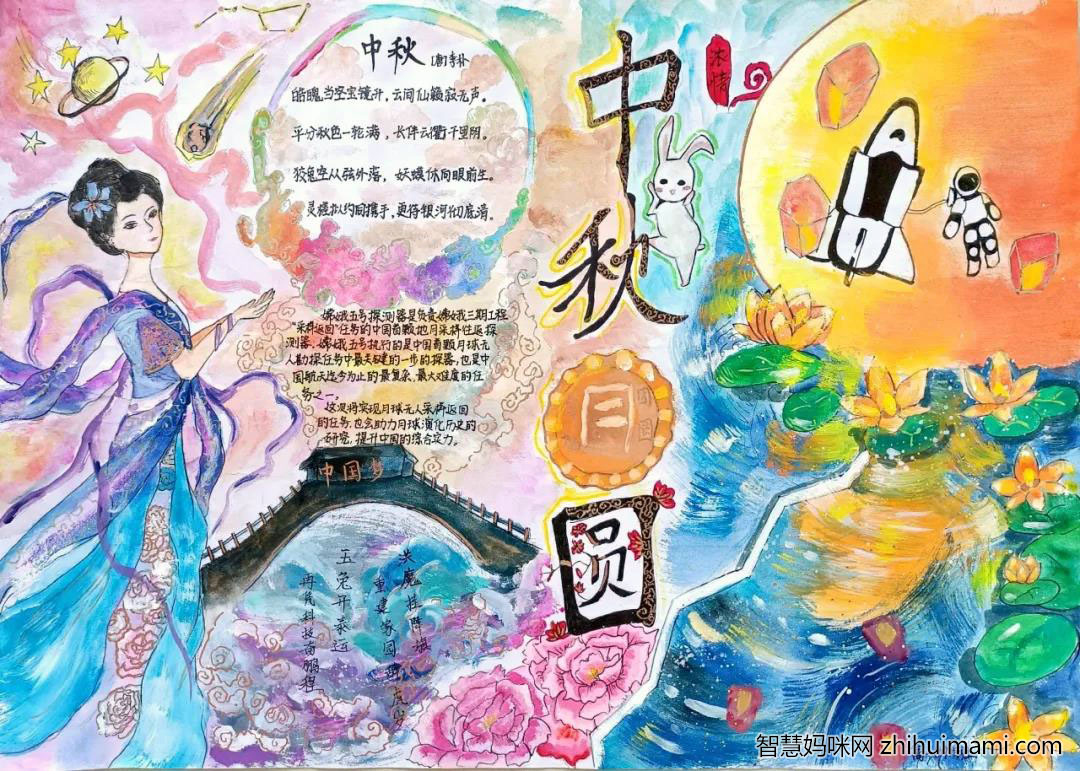 中秋 [唐]李朴
皓魄当空宝镜升，云间仙籁寂无声。
平分秋色一轮满，长伴云衢千里明。
狡兔空从弦外落，妖蟆休向眼前生。
灵槎拟约同携手，更待银河彻底清。
嫦娥五号探测器是负责嫦娥三期工程
"采样返回"任务的中国首颗地月采样往返探
测器。嫦娥五号执行的是中国首颗月球无
人勘探任务中最关键的一步的探器，也是中
国航天迄今为止的最复杂、最大难度的任
务之一。
这次将实现月球无人采样返回
的任务，也会助力月球演化历史的
研究，提升中国的综合实力。
中国梦
玉兔开泰运
再凭科技奋鹏程
中秋月圆
浓情
智慧妈咪网 zhihuimami.com